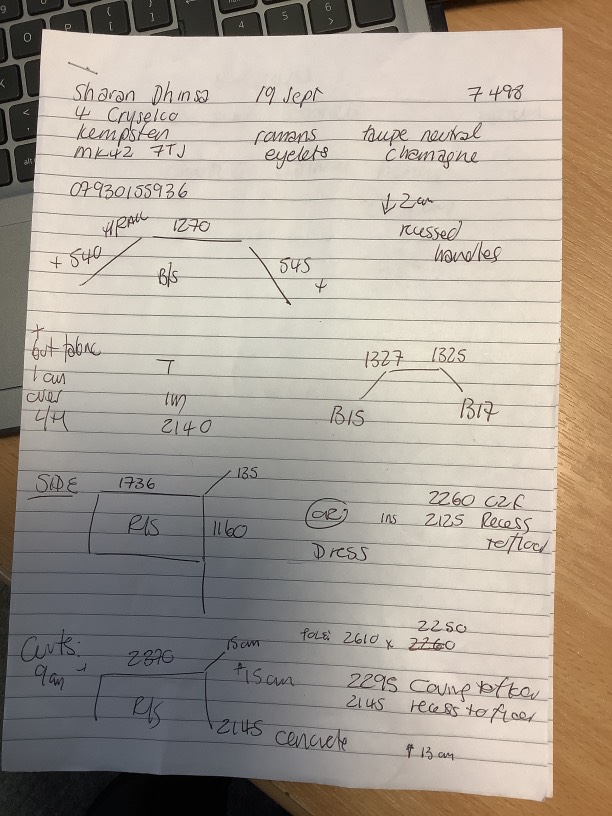 Sharan Dhinsa 19 Sept 7498
4 Cryselco
Kempsten romans taupe neutral
MK42 7TJ eyelets chamagne
07930155936
↓ 2cm
1270 recessed
handles
+ 540 B/S 545 +
+
but fabric T 1327 1325
1 cm
over 1m B15 B17
L/H 2140
SIDE 1736 135
2260 C2F
R/S 1160 OR ins 2125 Recess
to floor
Dress
2250
Curts: 15cm pole: 2610 x 2260
9cm + 2370 +15cm 2295 Coving to floor
R/S 2145 recess to floor
2145 concrete
↑ 13 cm